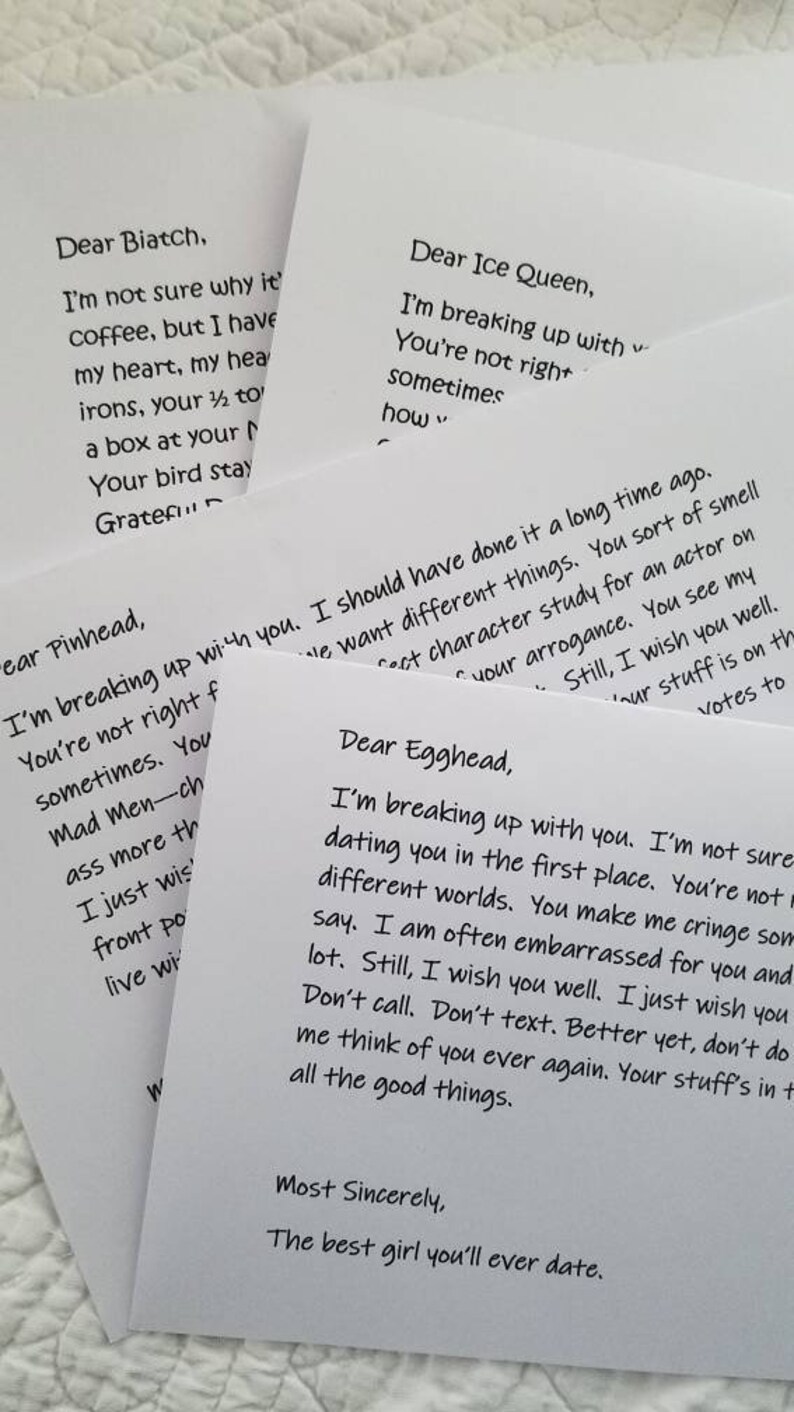 Dear Biatch,
I'm not sure why it'
coffee, but I have
my heart, my hea
irons, your ½ to
a box at your
Your bird stay
Grateful
Dear Ice Queen,
I'm breaking up with
You're not right
sometimes
how
ear Pinhead,
I'm breaking up with you. I should have done it a long time ago.
You're not right We want different things. You sort of smell
sometimes. You fect character study for an actor on
Mad Men—ch your arrogance. You see my
ass more th Still, I wish you well.
I just wis our stuff is on th
front po votes to
live wi
Dear Egghead,
I'm breaking up with you. I'm not sure
dating you in the first place. You're not
different worlds. You make me cringe som
say. I am often embarrassed for you and
lot. Still, I wish you well. I just wish you
Don't call. Don't text. Better yet, don't do
me think of you ever again. Your stuff's in t
all the good things.
Most Sincerely,
The best girl you'll ever date.